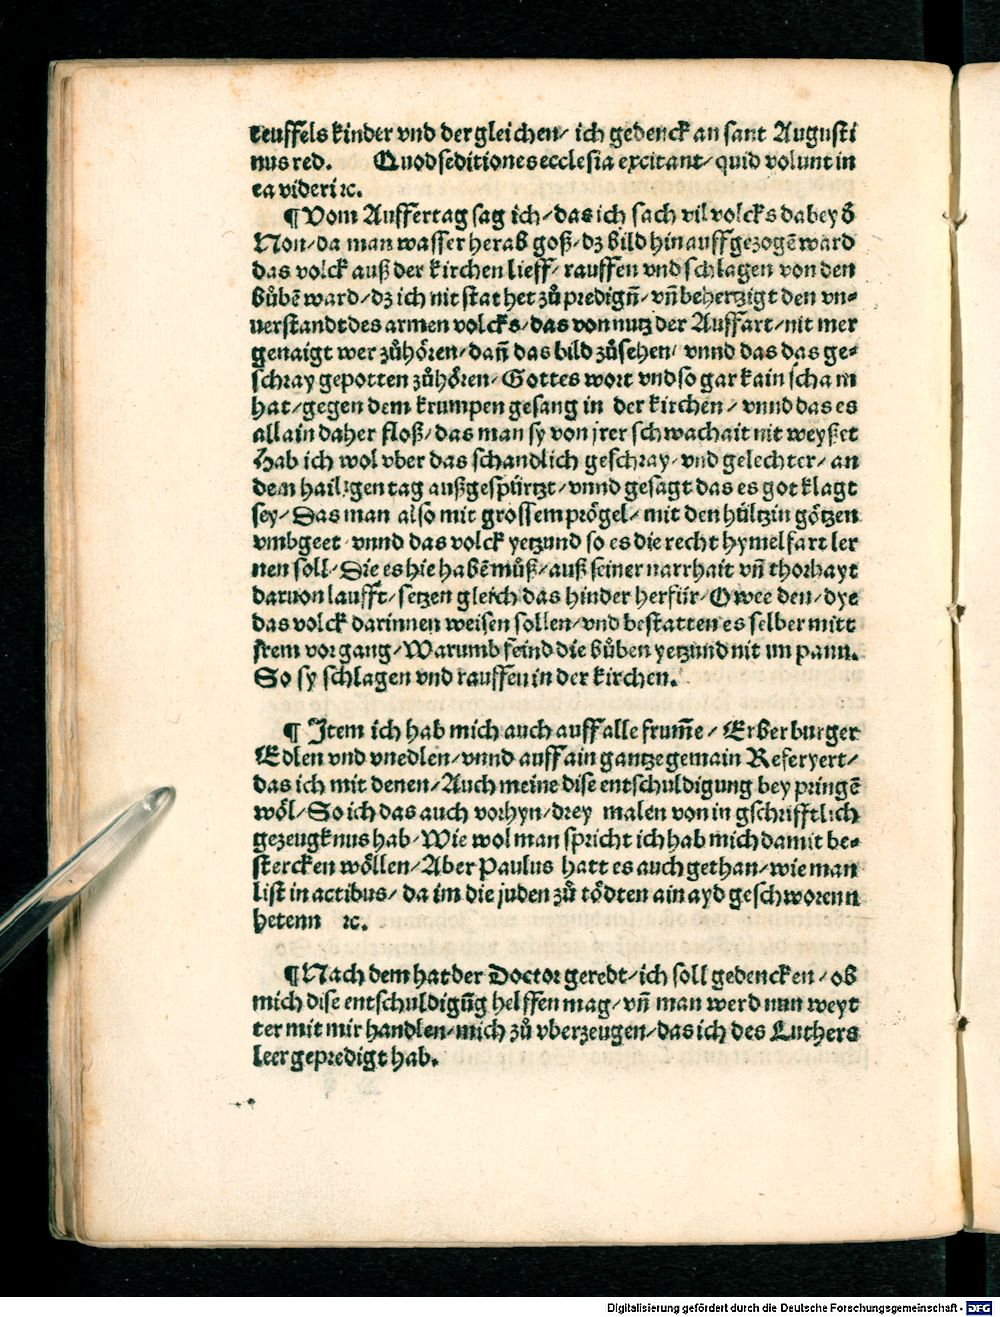 teuffels kinder vnd der gleichen/ ich gedenck an sant Augusti
nus red. Quod seditiones ecclesia excitant/ quid volunt in
ea videri ⁊c.
¶ Vom Auffertag sag ich/ das ich sach vil volcks dabey d̕
Non/ da man wasser herab goß/ dz bild hinauff gezogē ward
das volck auß der kirchen lieff/ rauffen vnd schlagen von den
bůbē ward/ dz ich nit stat het zů predign̄/ vn̄ behertzigt den vn⸗
uerstandt des armen volcks/ das von nutz der Auffart/ nit mer
genaigt wer zůhóren/ dan̄ das bild zůsehen/ vnnd das das ge⸗
schray gepotten zůhóren/ Gottes wort vnd so gar kain scham
hat/ gegen dem krumpen gesang in der kirchen/ vnnd das es
allain daher floß/ das man sy von jrer schwachait nit weyßet
Hab ich wol vber das schandlich geschray/ vnd gelechter/ an
dem hailigen tag außgespürtzt/ vnnd gesagt das es got klagt
sey/ Das man also mit grossem prögel/ mit den hültzin götzen
vmbgeet/ vnnd das volck yetzund so es die recht hymelfart ler
nen soll/ Die es hie habē můß/ auß seiner narrhait vn̄ thorhayt
daruon laufft/ setzen gleich das hinder herfür/ O wee den/ dye
das volck darinnen weisen sollen/ vnd bestatten es selber mitt
jrem vorgang/ Warumb seind die bůben yetzund nit im pann.
So sy schlagen vnd rauffen in der kirchen.
¶ Item ich hab mich auch auff alle frum̄e/ Erber burger
Edlen vnd vnedlen/ vnnd auff ain gantze gemain Referyert/
das ich mit denen/ Auch meine dise entschuldigung bey pringē
wöl/ So ich das auch vorhyn/ drey malen von in gschrifftlich
gezeugknus hab/ Wie wol man spricht ich hab mich damit be⸗
stercken wöllen/ Aber Paulus hatt es auch gethan/ wie man
list in actibus/ da im die juden zů tödten ain ayd geschworenn
hetenn ⁊c.
¶ Nach dem hat der Doctor geredt/ ich soll gedencken/ ob
mich dise entschuldigūg helffen mag/ vn̄ man werd nun weyt
ter mit mir handlen/ mich zů vberzeugen/ das ich des Luthers
leer gepredigt hab.
Digitalisierung gefördert durch die Deutsche Forschungsgemeinschaft - DFG